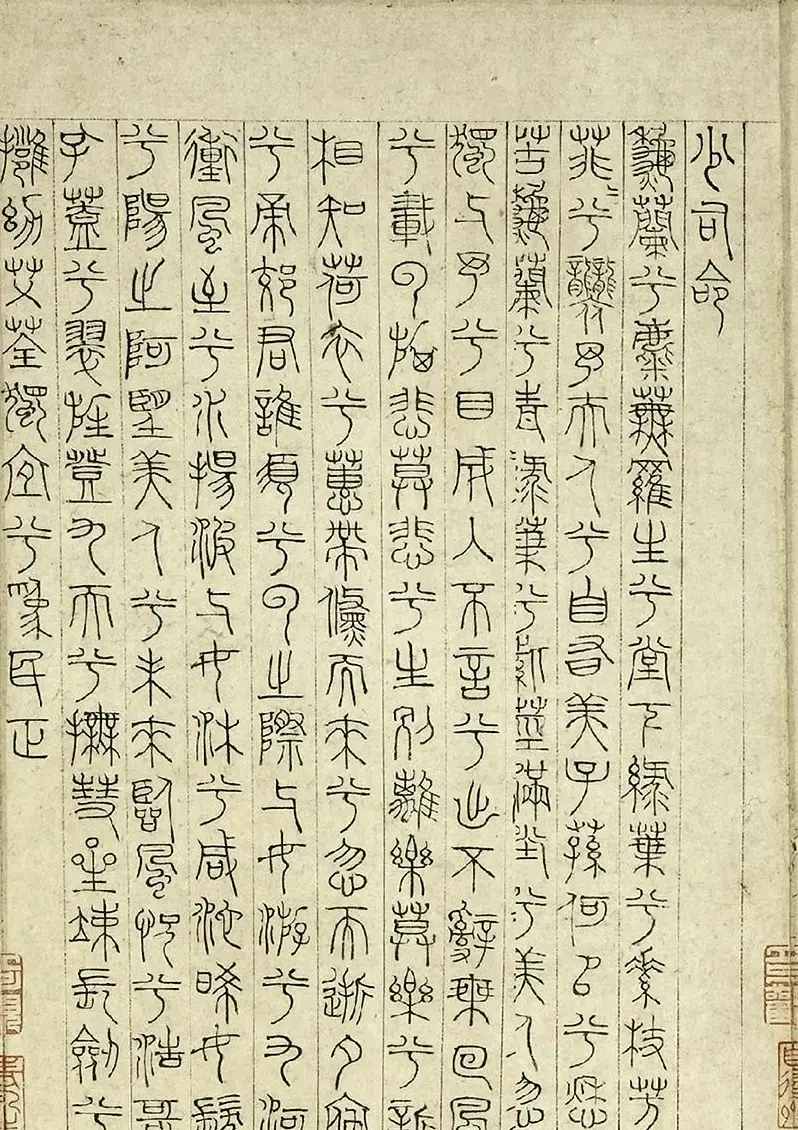 少司命
龝蘭兮麋蕪羅生兮堂下綠葉兮素枝芳
菲〻兮襲予夫人兮自有美子蓀何㠯兮愁
苦龝蘭兮青綠葉兮紫莖滿堂兮美人忽
獨与予兮目成入不言兮出不辭乘回風
兮載雲旗悲莫悲兮生別離樂莫樂兮新
相知荷衣兮蕙帶儵而來兮忽而逝夕宿
兮帝郊君誰須兮雲之際与女游兮九河
衝風至兮水揚波与女沐兮咸池晞女髮
兮陽之阿望美人兮未來臨風怳兮浩歌
孔蓋兮翠旌登九天兮撫彗星竦長劍兮
擁幼艾荃獨宜兮為民正